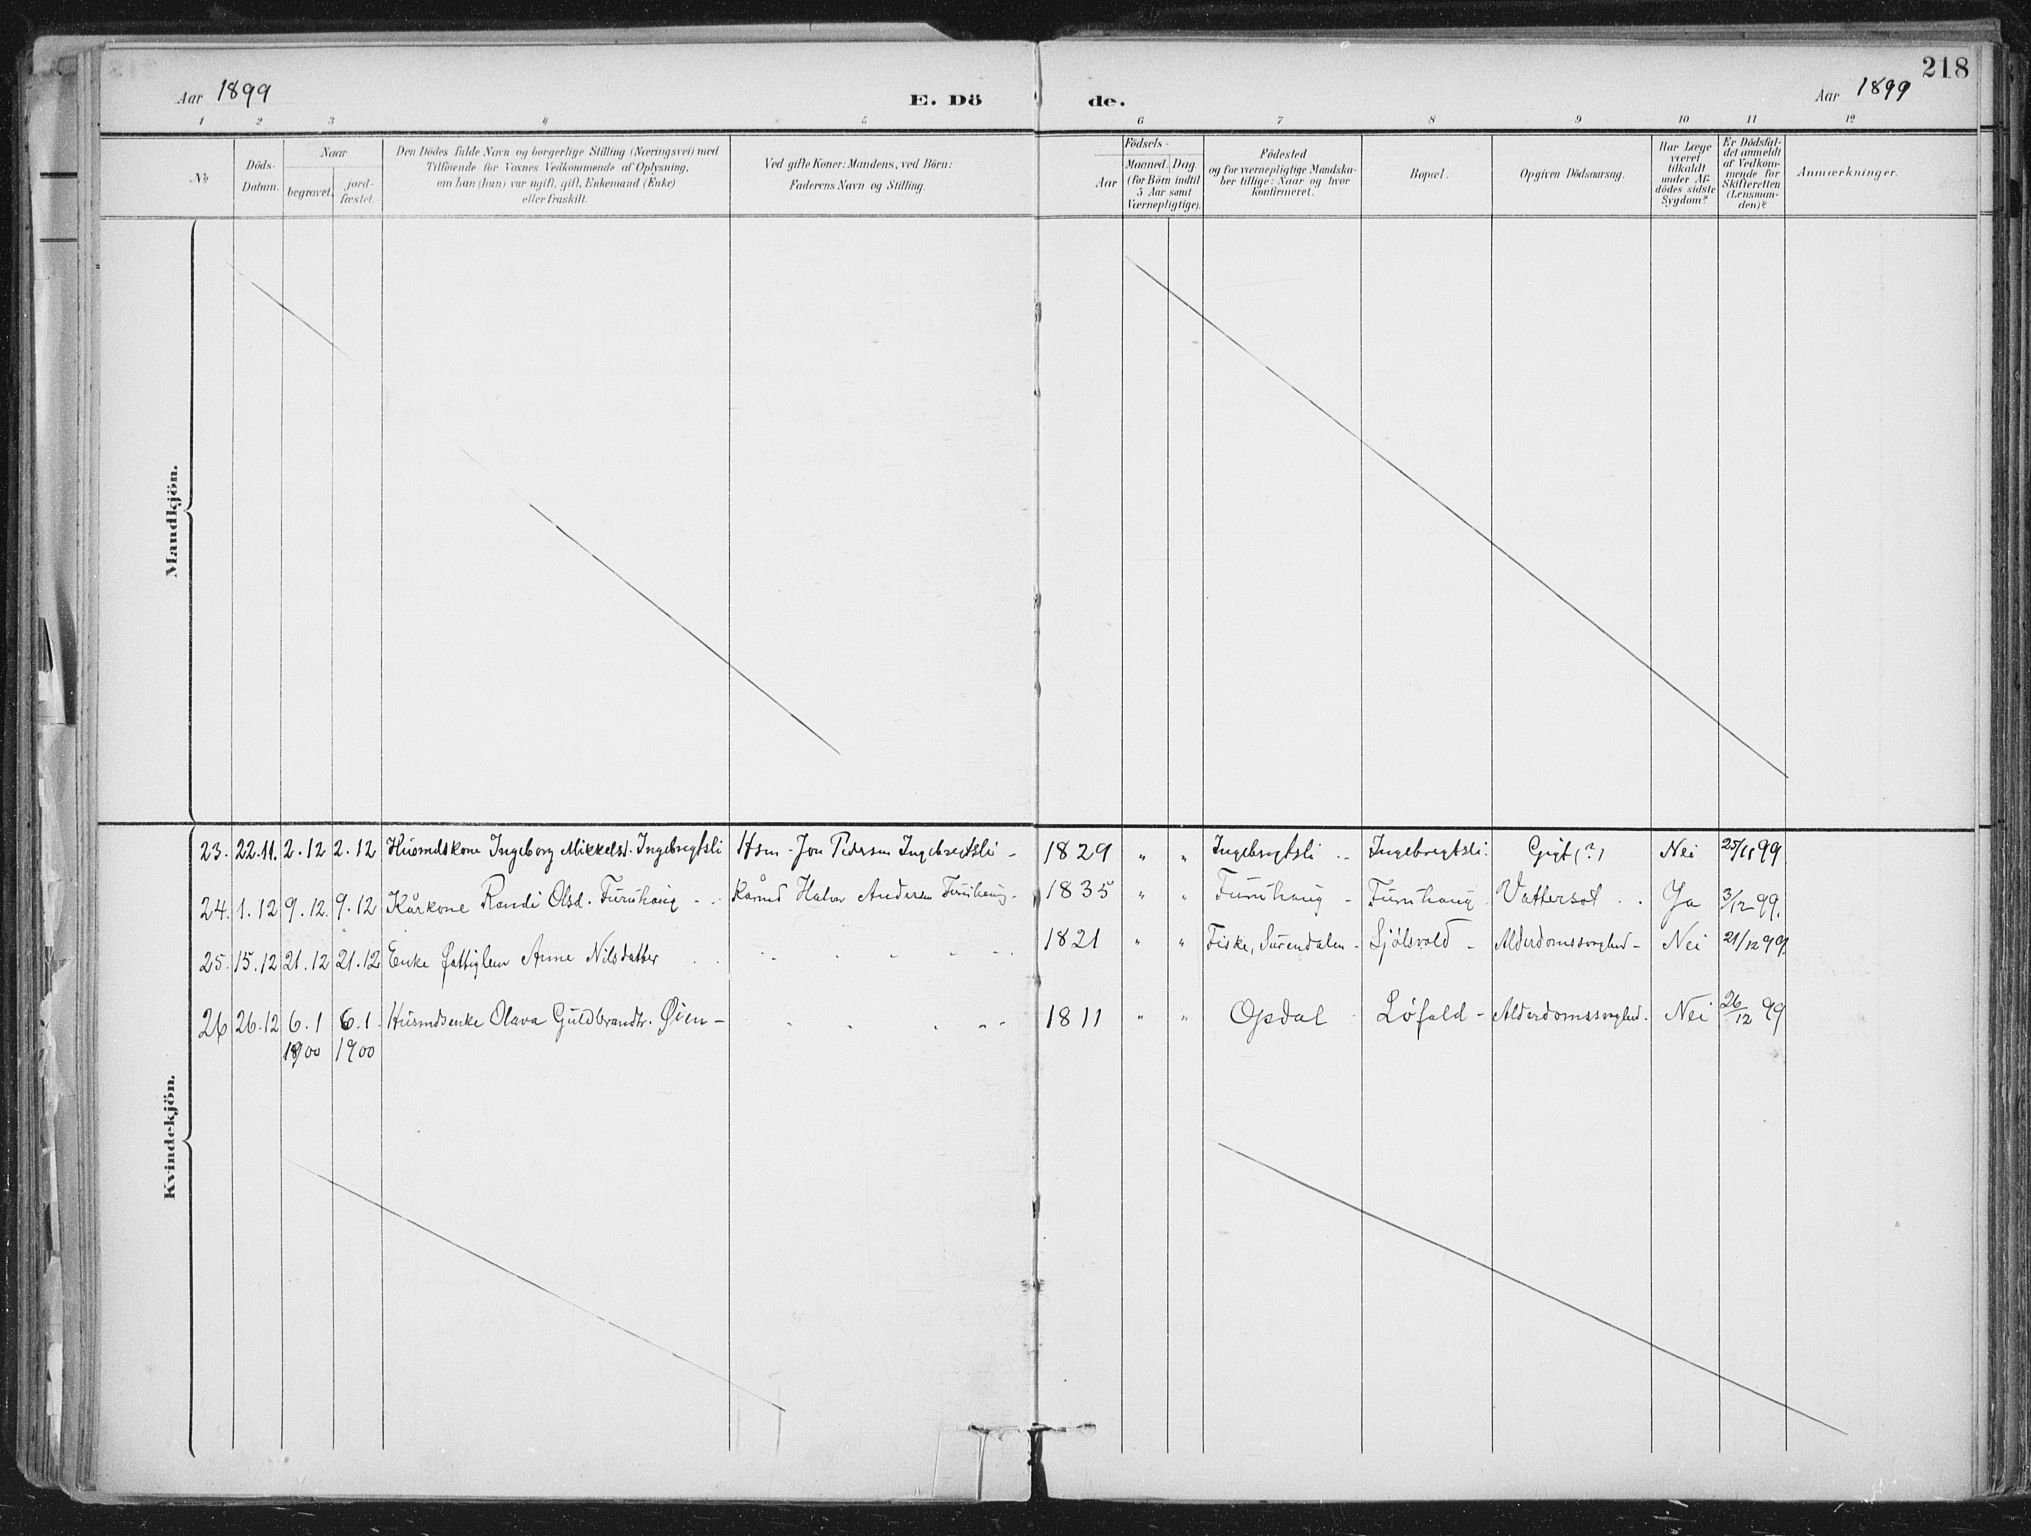 218
Aar 1899 E. Dö de. Aar 1899
1 2 3 4 5 6 7 8 9 10 11 12
№
Döds-Datum.
Naar
begravet.
jord-fæstet.
Den Dödes fulde Navn og borgerlige Stilling (Næringsvei) med
Tilföiende for Voxnes Vedkommende af Oplysning,
om han (hun) var ugift, gift, Enkemand (Enke)
eller fraskilt.
Ved gifte Koner: Mandens, ved Börn:
Faderens Navn og Stilling.
Födsels-
Aar
Maaned. Dag
(for Börn indtil
5 Aar samt
Værnepligtige).
Födested
og for værnepligtige Mandska-
ber tillige: Naar og hvor
konfirmeret.
Bopæl.
Opgiven Dödsaarsag.
Har Læge
været
tilkaldt
under Af-
dödes sidste
Sygdom?
Er Dödsfal-
det anmeldt
af Vedkom-
mende for
Skifteretten
(Lensman-
den)?
Anmærkninger.
Mandkjön.
Kvindekjön.
23. 22.11. 2.12 2.12 Husmdskone Ingeborg Mikkelsd. Ingebregtsli Hsm. Jon Pedersen Ingebregtsli - 1829 " " Ingebregtsli Ingebregtsli. Gigt (?) Nei 25/11 99
24. 1.12 9.12. 9.12 Kårkone Randi Olsd. Furuhaug Kårmd Halvor Andersen Furuhaug - 1835 " " Furuhaug - Furuhaug Vattersot Ja 3/12 99.
25. 15.12 21.12 21.12 Enke Fattiglem Anne Nilsdatter 1821 " " Fiske, Surendalen - Sjølsvold - Alderdomssvaghed - Nei 21/12 99.
26 26.12 6.1 6.1 Husmdsenke Olava Guldbrandtr. Øien - 1811 " " Opdal Løfald - Alderdomssvaghed. Nei 26/12 99
1900 1900